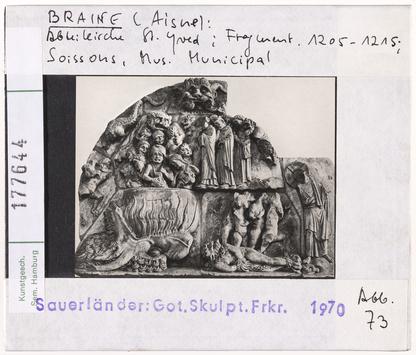 BRAINE (Aisne):
Abteikirche St. Yved; Fragment. 1205-1215;
Soissons, Mus. Municipal
177644
Kunstgesch.
Sem. Hamburg
Sauerländer: Got. Skulpt. Frkr. 1970
Abb.
73